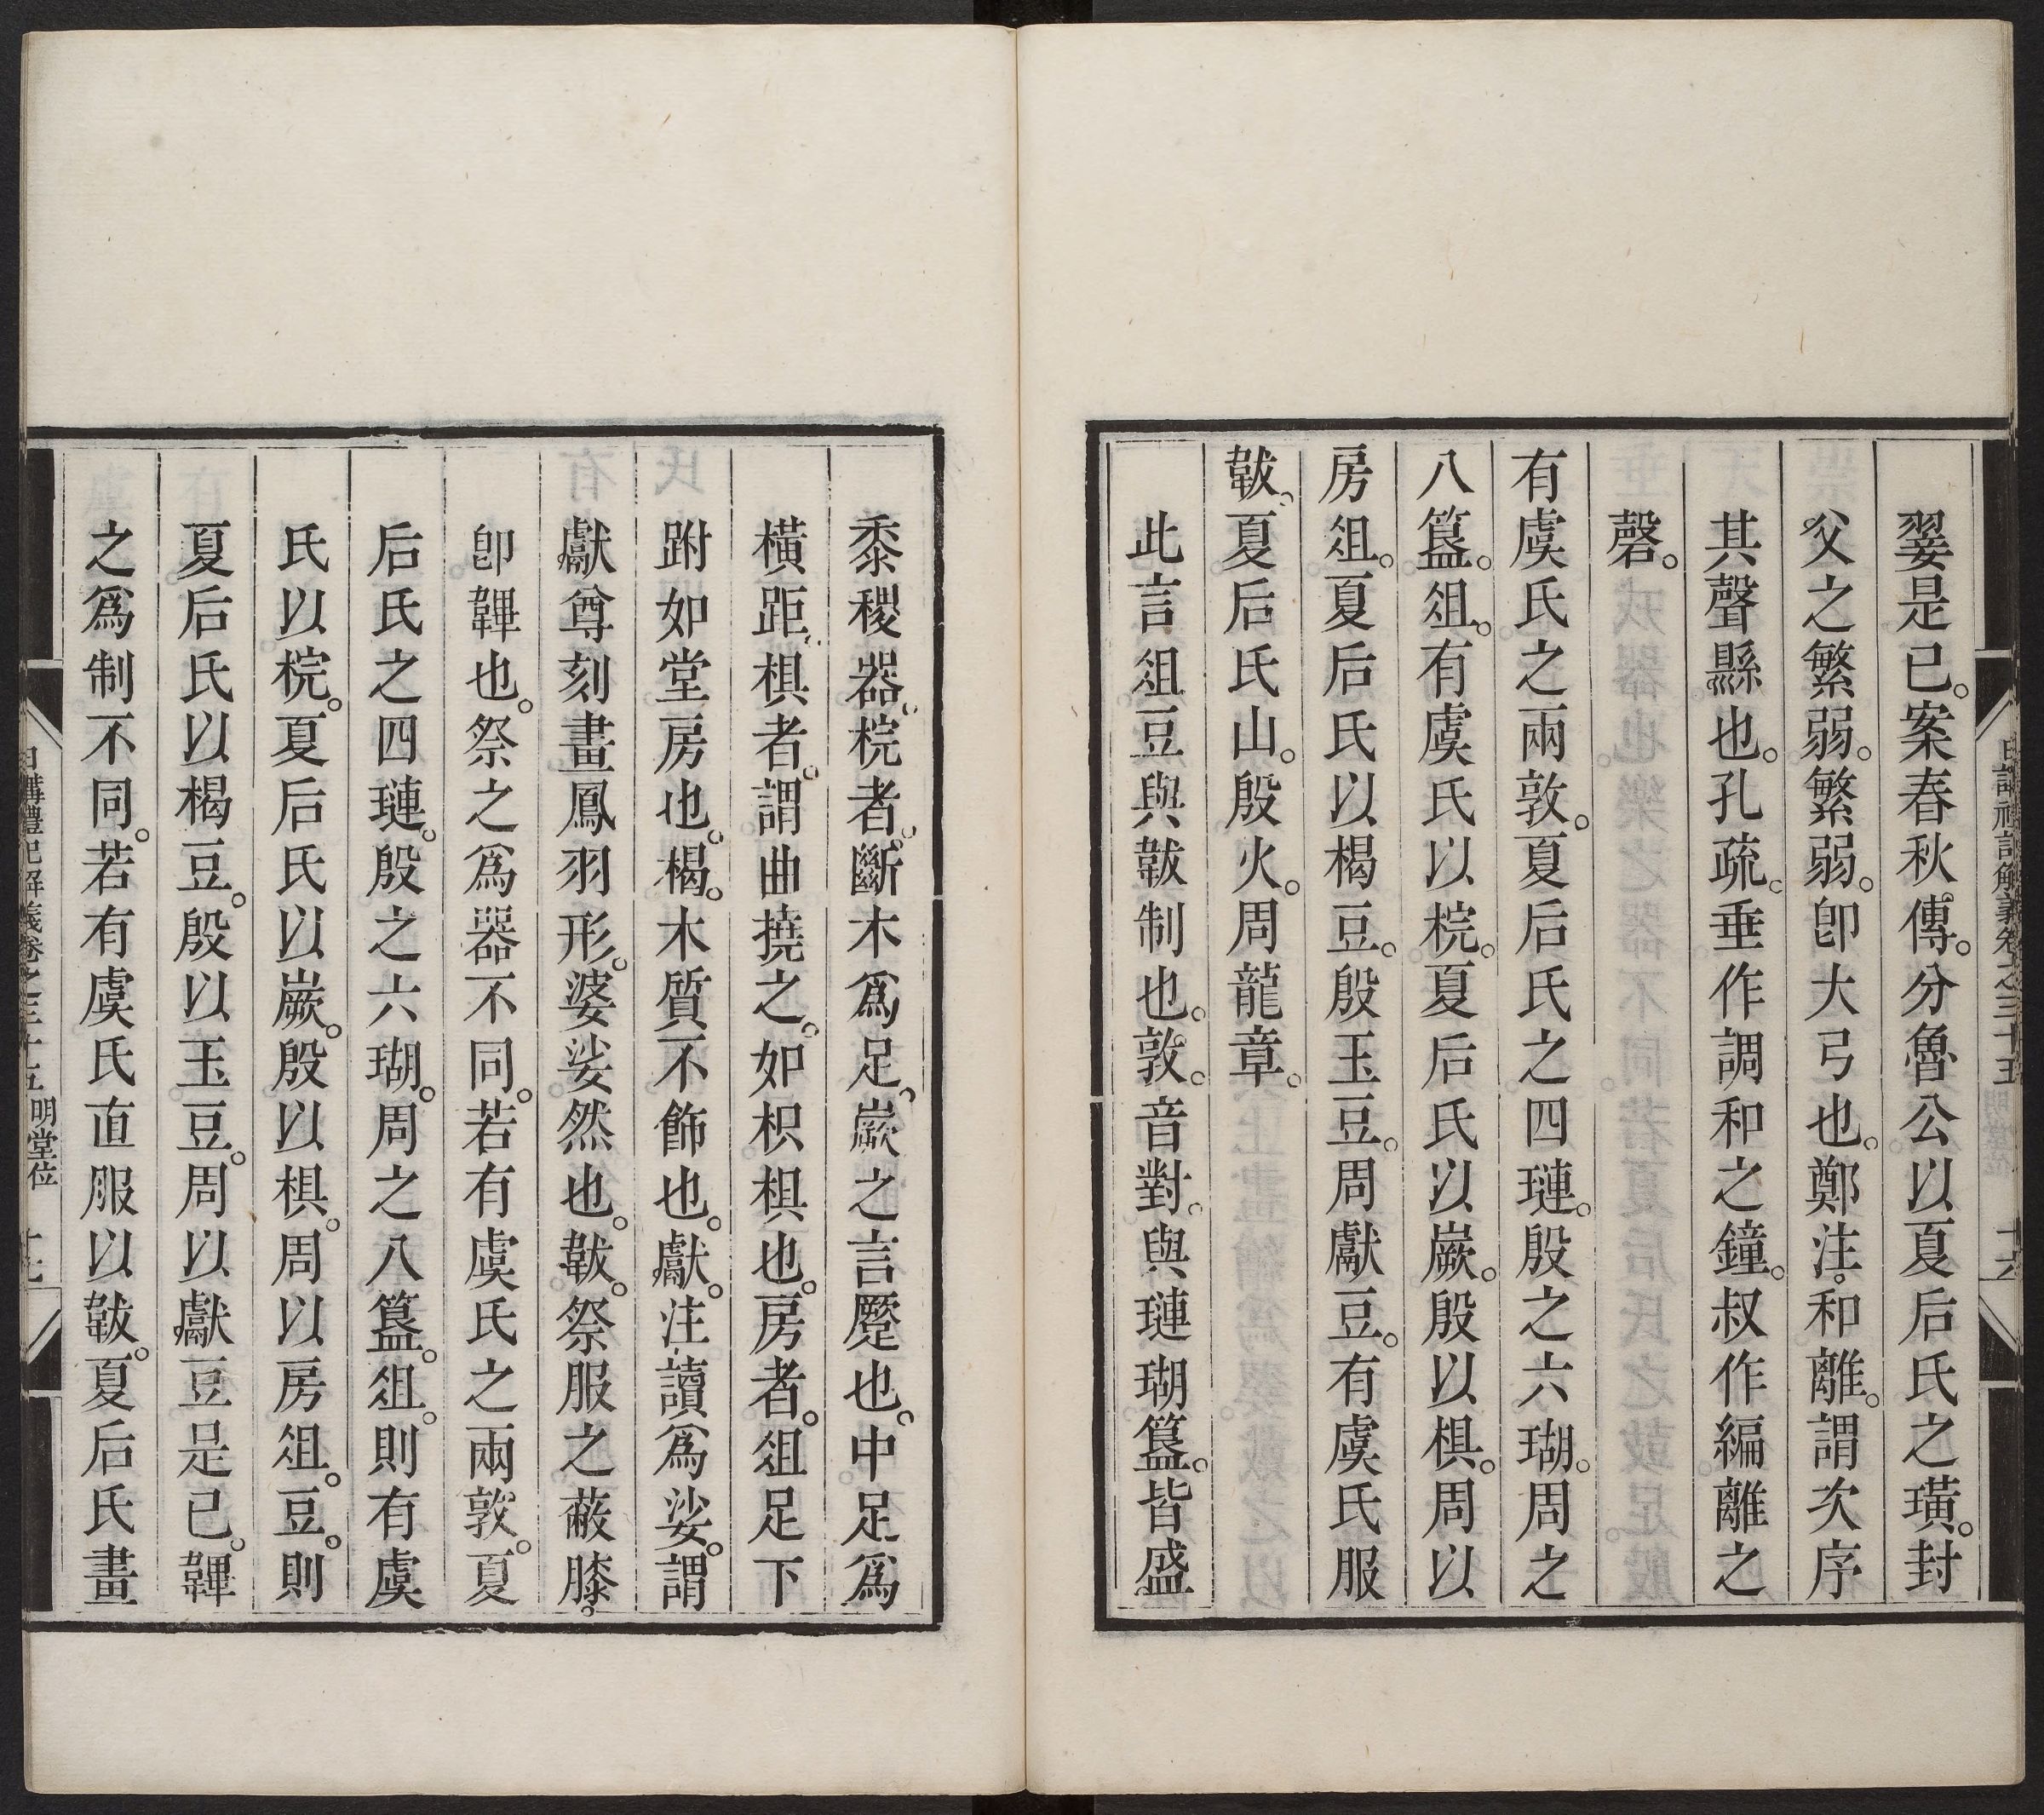 翣是已。案春秋傳。分魯公以夏后氏之璜。封
父之繁弱。繁弱。卽大弓也。鄭注。和離。謂次序
其聲縣也。孔疏。垂作調和之鐘。叔作編離之
磬。
有虞氏之兩敦。夏后氏之四璉。殷之六瑚。周之
八簋。俎。有虞氏以梡。夏后氏以嶡。殷以椇。周以
房俎。夏后氏以楬豆。殷玉豆。周獻豆。有虞氏服
韍。夏后氏山。殷火。周龍章。
此言俎豆與韍制也。敦。音對。與璉瑚簋。皆盛
日講禮記解義卷之三十五 明堂位 十六
黍稷器。梡者。斷木爲足。嶡之言蹷也。中足爲
橫距。椇者。謂曲撓之。如枳椇也。房者。俎足下
跗如堂房也。楬。木質不飾也。獻。注讀爲娑。謂
獻尊刻畫鳳羽形。婆娑然也。韍。祭服之蔽膝。
卽韠也。祭之爲器不同。若有虞氏之兩敦。夏
后氏之四璉。殷之六瑚。周之八簋。俎。則有虞
氏以梡。夏后氏以嶡。殷以椇。周以房俎。豆。則
夏后氏以楬豆。殷以玉豆。周以獻豆是已。韠
之爲制不同。若有虞氏直服以韍。夏后氏畫
日講禮記解義卷之三十五 明堂位 十七